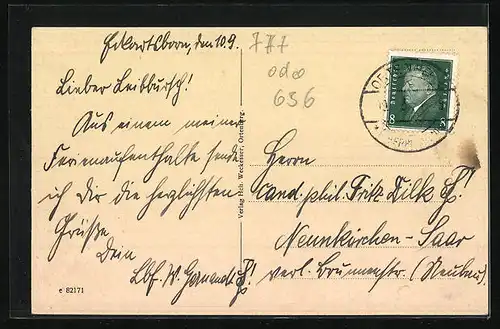 Eckartsborn, den 10.9.
Lieber Leibbursch!
Aus einem meiner
Ferienaufenthalte sende
ich Dir die herzlichsten
Grüße
Dein
Lbf. W.
777
oder
636
Herrn
cand. phil. Fritz Dilk
Neunkirchen-Saar
verl. Brunnenstr. (Neubau)
Verlag Hch. Weckesser, Ortenberg.
e 82171
8 8